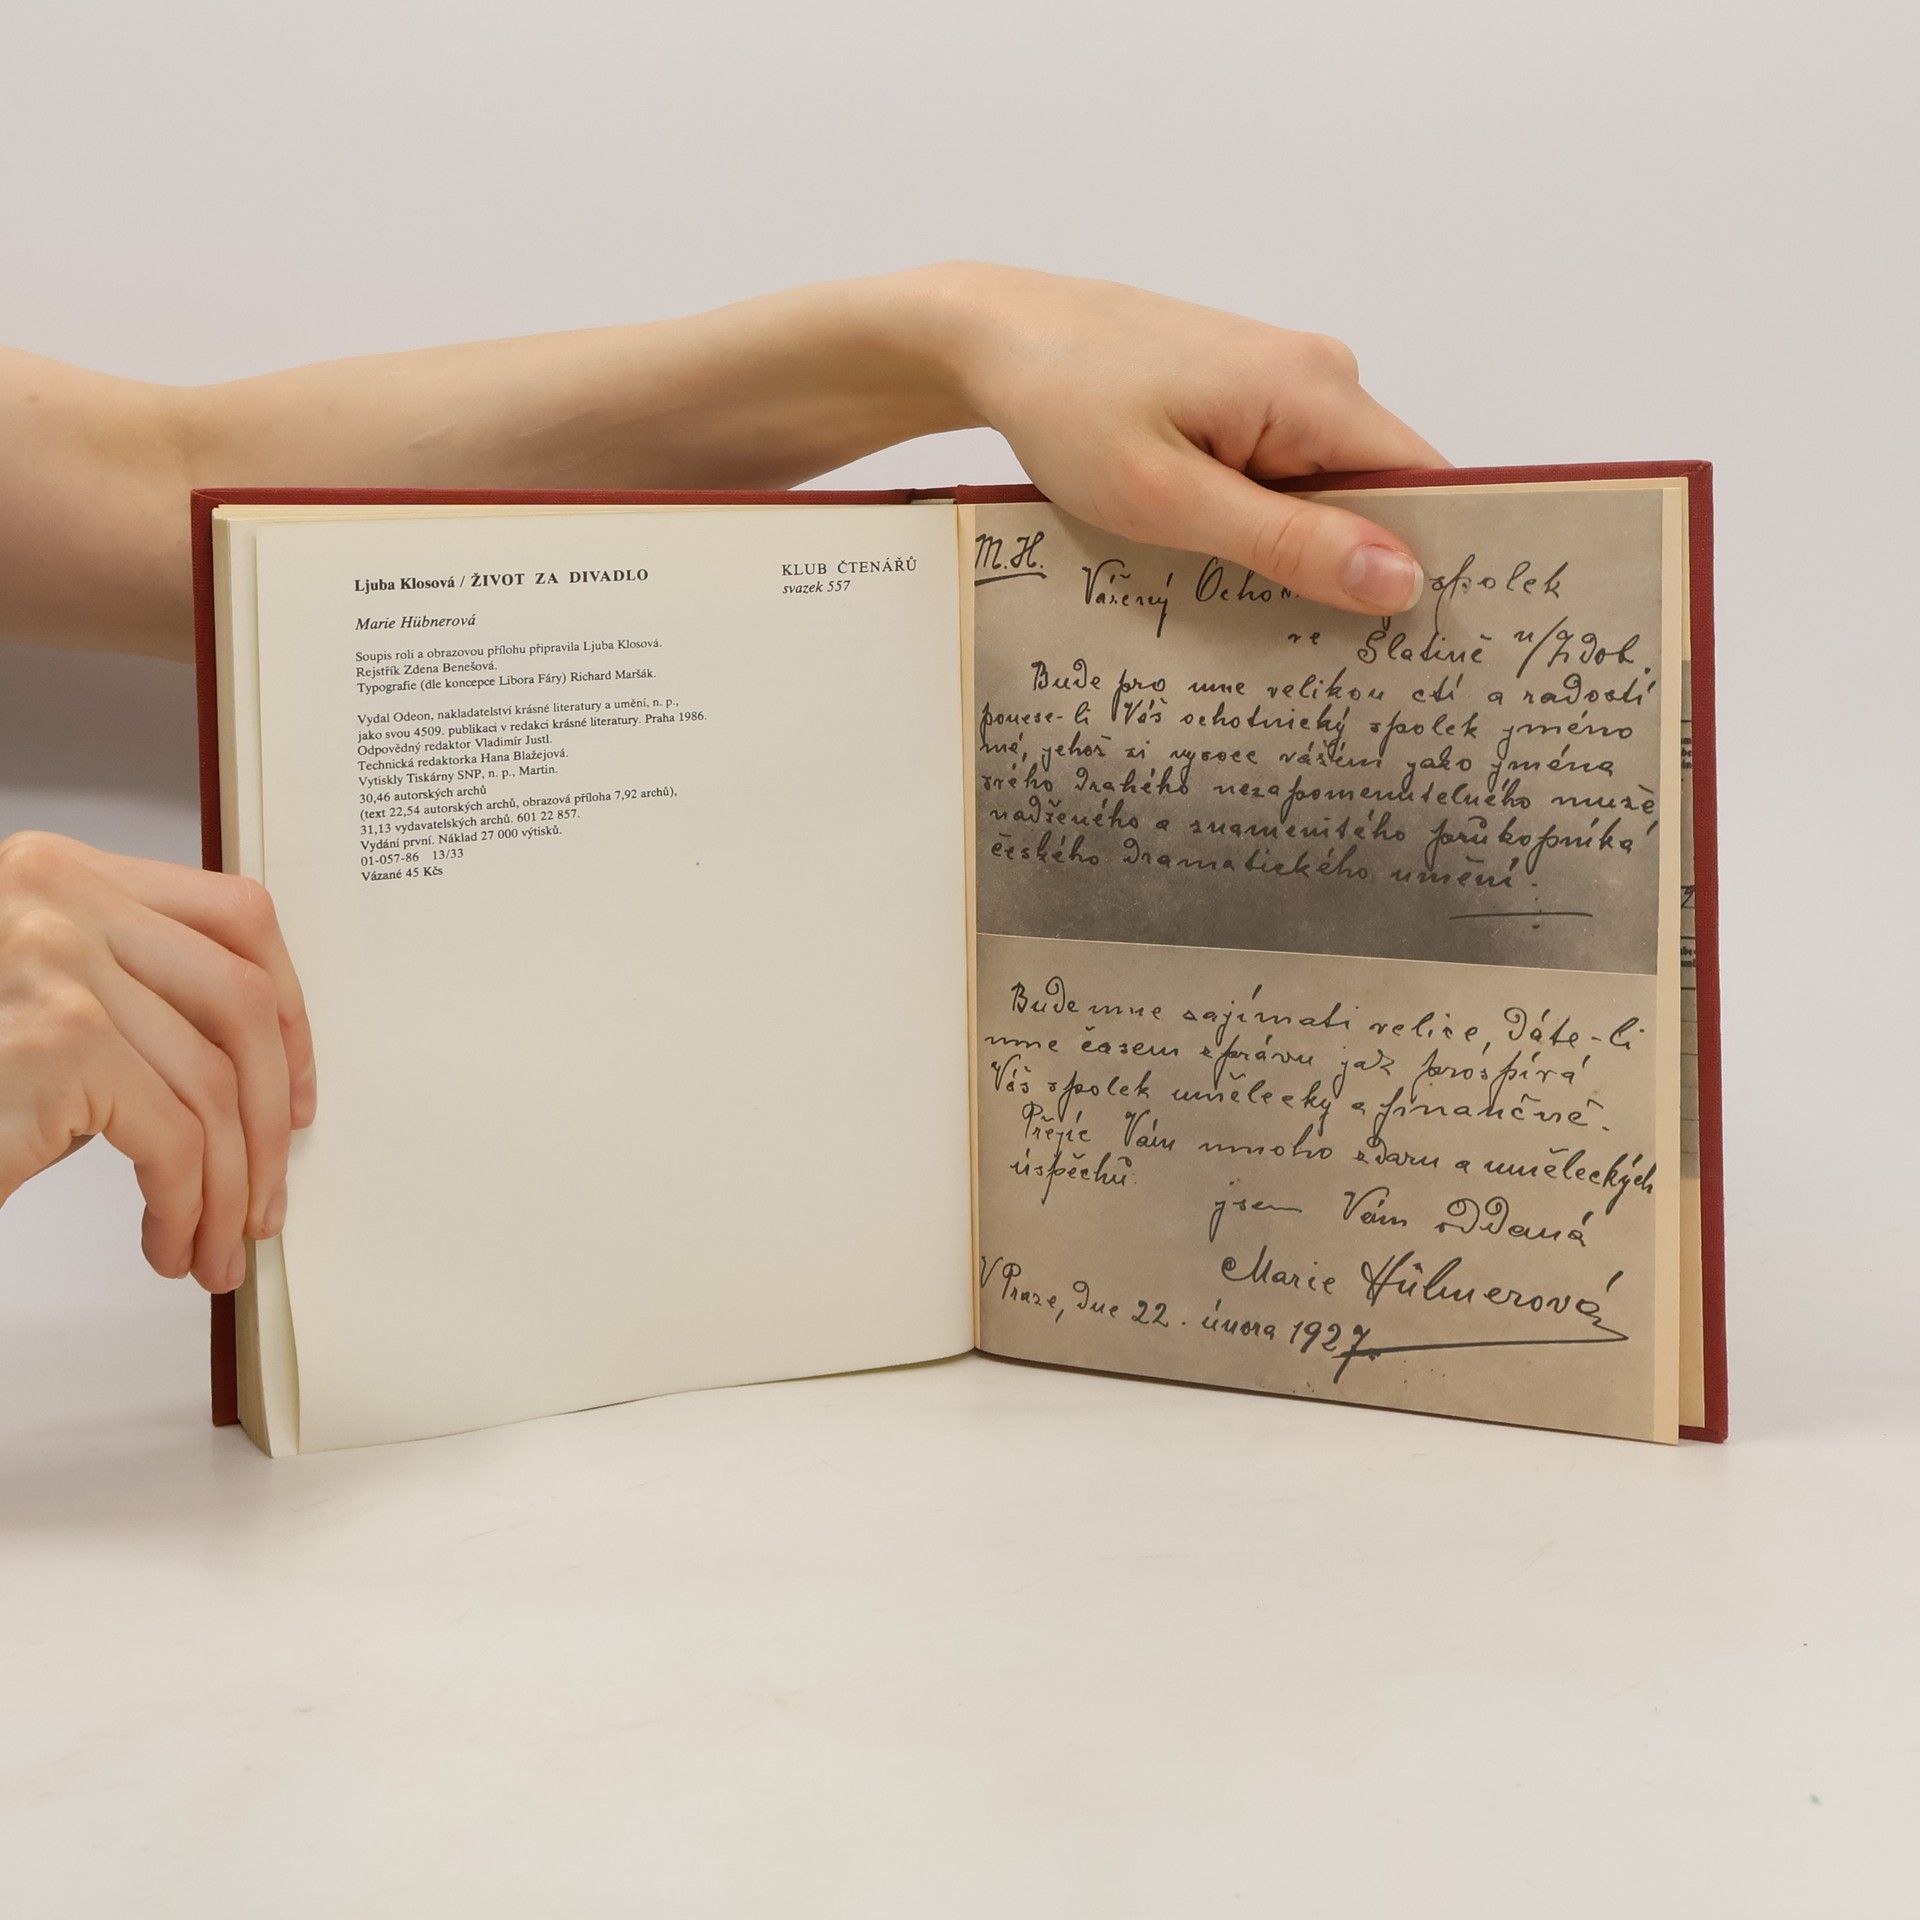 Ljuba Klosová / ŽIVOT ZA DIVADLO
KLUB ČTENÁŘŮ
svazek 557
Marie Hübnerová
Soupis rolí a obrazovou přílohu připravila Ljuba Klosová.
Rejstřík Zdena Benešová.
Typografie (dle koncepce Libora Fáry) Richard Maršák.
Vydal Odeon, nakladatelství krásné literatury a umění, n. p.,
jako svou 4509. publikaci v redakci krásné literatury. Praha 1986.
Odpovědný redaktor Vladimír Justl.
Technická redaktorka Hana Blažejová.
Vytiskly Tiskárny SNP, n. p., Martin.
30,46 autorských archů
(text 22,54 autorských archů, obrazová příloha 7,92 archů),
31,13 vydavatelských archů. 601 22 857.
Vydání první. Náklad 27 000 výtisků.
01-057-86 13/33
Vázané 45 Kčs
M. H.
Vážený spolek
ve Slatině n/Zdob.
Bude pro mne velikou ctí a radostí
ponese-li Váš ochotnický spolek jméno
mé, jehož si vysoce vážím jako jména
svého drahého nezapomenutelného muže,
nadšeného a znamenitého průkopníka
českého dramatického umění.
Bude mne zajímati velice, dáte-li
mne časem zprávu jak prospívá
Váš spolek umělecky a finančně.
Přejíc Vám mnoho zdaru a uměleckých
úspěchů
jsem Vám oddaná
Marie Hübnerová
V Praze, dne 22. února 1927.